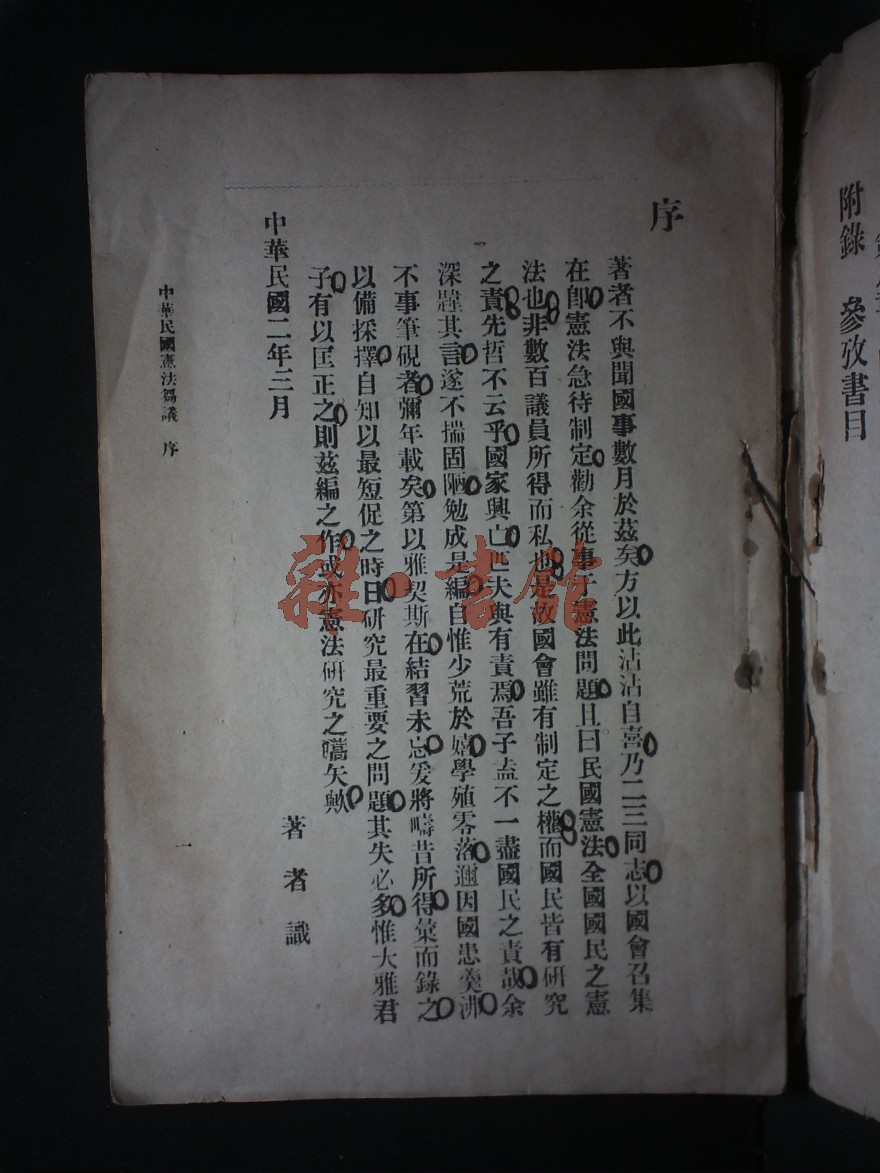 附錄　參攷書目
序
著者不與聞國事數月於茲矣方以此沾沾自喜乃二三同志以國會召集
在卽憲法急待制定勸余從事于憲法問題且曰民國憲法全國國民之憲
法也非數百議員所得而私也是故國會雖有制定之權而國民皆有研究
之責先哲不云乎國家興亡匹夫與有責焉吾子盍不一盡國民之責哉余
深韙其言遂不揣固陋勉成是編自惟少荒於嬉學殖零落邇因國患羹沸
不事筆硯者彌年載矣第以雅契斯在結習未忘爰將疇昔所得彙而錄之
以備採擇自知以最短促之時日研究最重要之問題其失必多惟大雅君
子有以匡正之則茲編之作或亦憲法研究之嚆矢歟
中華民國二年三月
著者識
中華民國憲法芻議　序
一
雜·書館